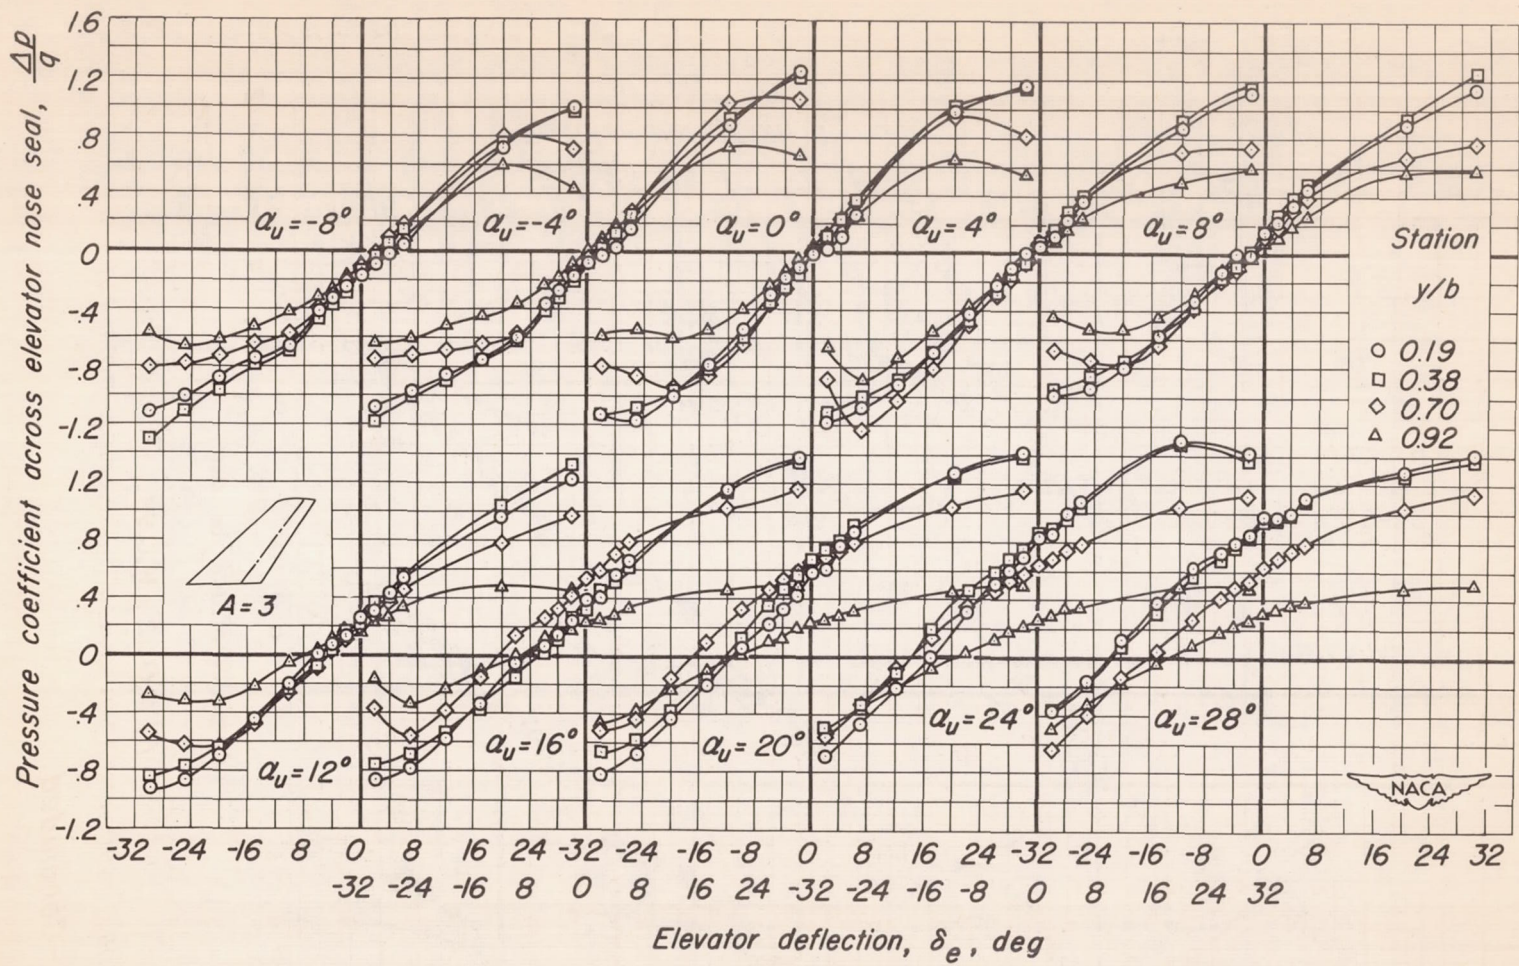 Pressure coefficient across elevator nose seal, Δp/q
1.6
1.2
.8
.4
0
-.4
-.8
-1.2
1.2
.8
.4
0
-.4
-.8
-1.2
αu=-8° αu=-4° αu=0° αu=4° αu=8°
Station
y/b
0.19
0.38
0.70
0.92
A=3
αu=12° αu=16° αu=20° αu=24° αu=28°
NACA
-32 -24 -16 8 0 8 16 24 -32 -24 -16 -8 0 8 16 24 -32 -24 -16 -8 0 8 16 24 32
-32 -24 -16 8 0 8 16 24 -32 -24 -16 -8 0 8 16 24 32
Elevator deflection, δe, deg